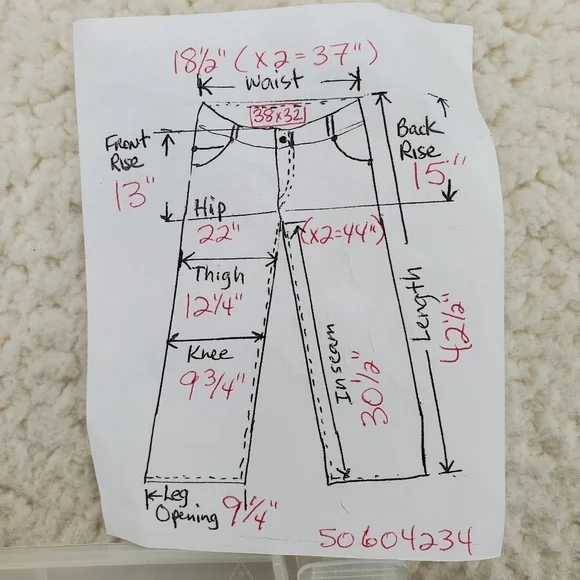 18½" (x2=37")
Waist
38x32
Front
Rise
13"
Back
Rise
15"
Hip
22"
(x2=44")
Thigh
12¼"
Knee
9¾"
Inseam
30½"
Length
42½"
Leg
Opening
9¼"
50604234